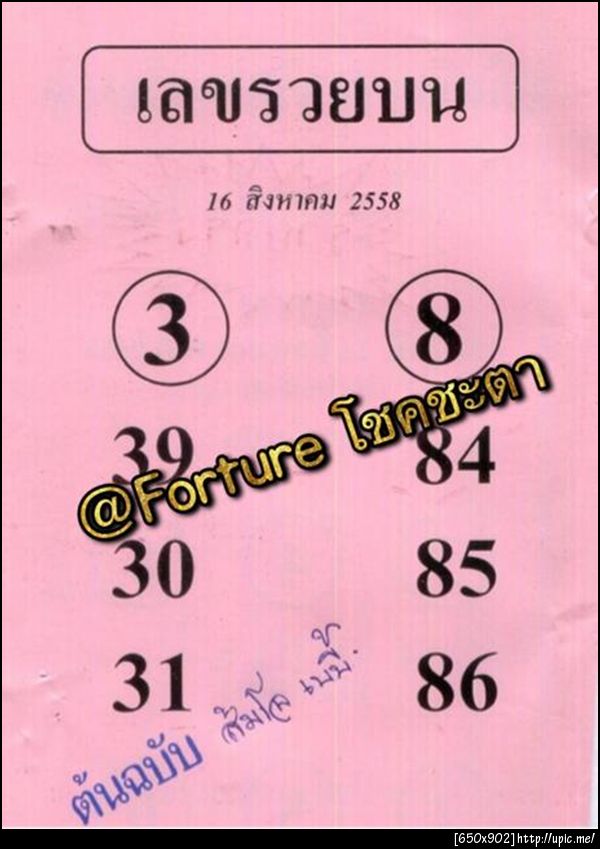 เลขรวยบน
16 สิงหาคม 2558
3 8
39 84
@Forture โชคชะตา
30 85
31 86
ต้นฉบับ ส้มโอ เบบี้.
[650x902]http://upic.me/